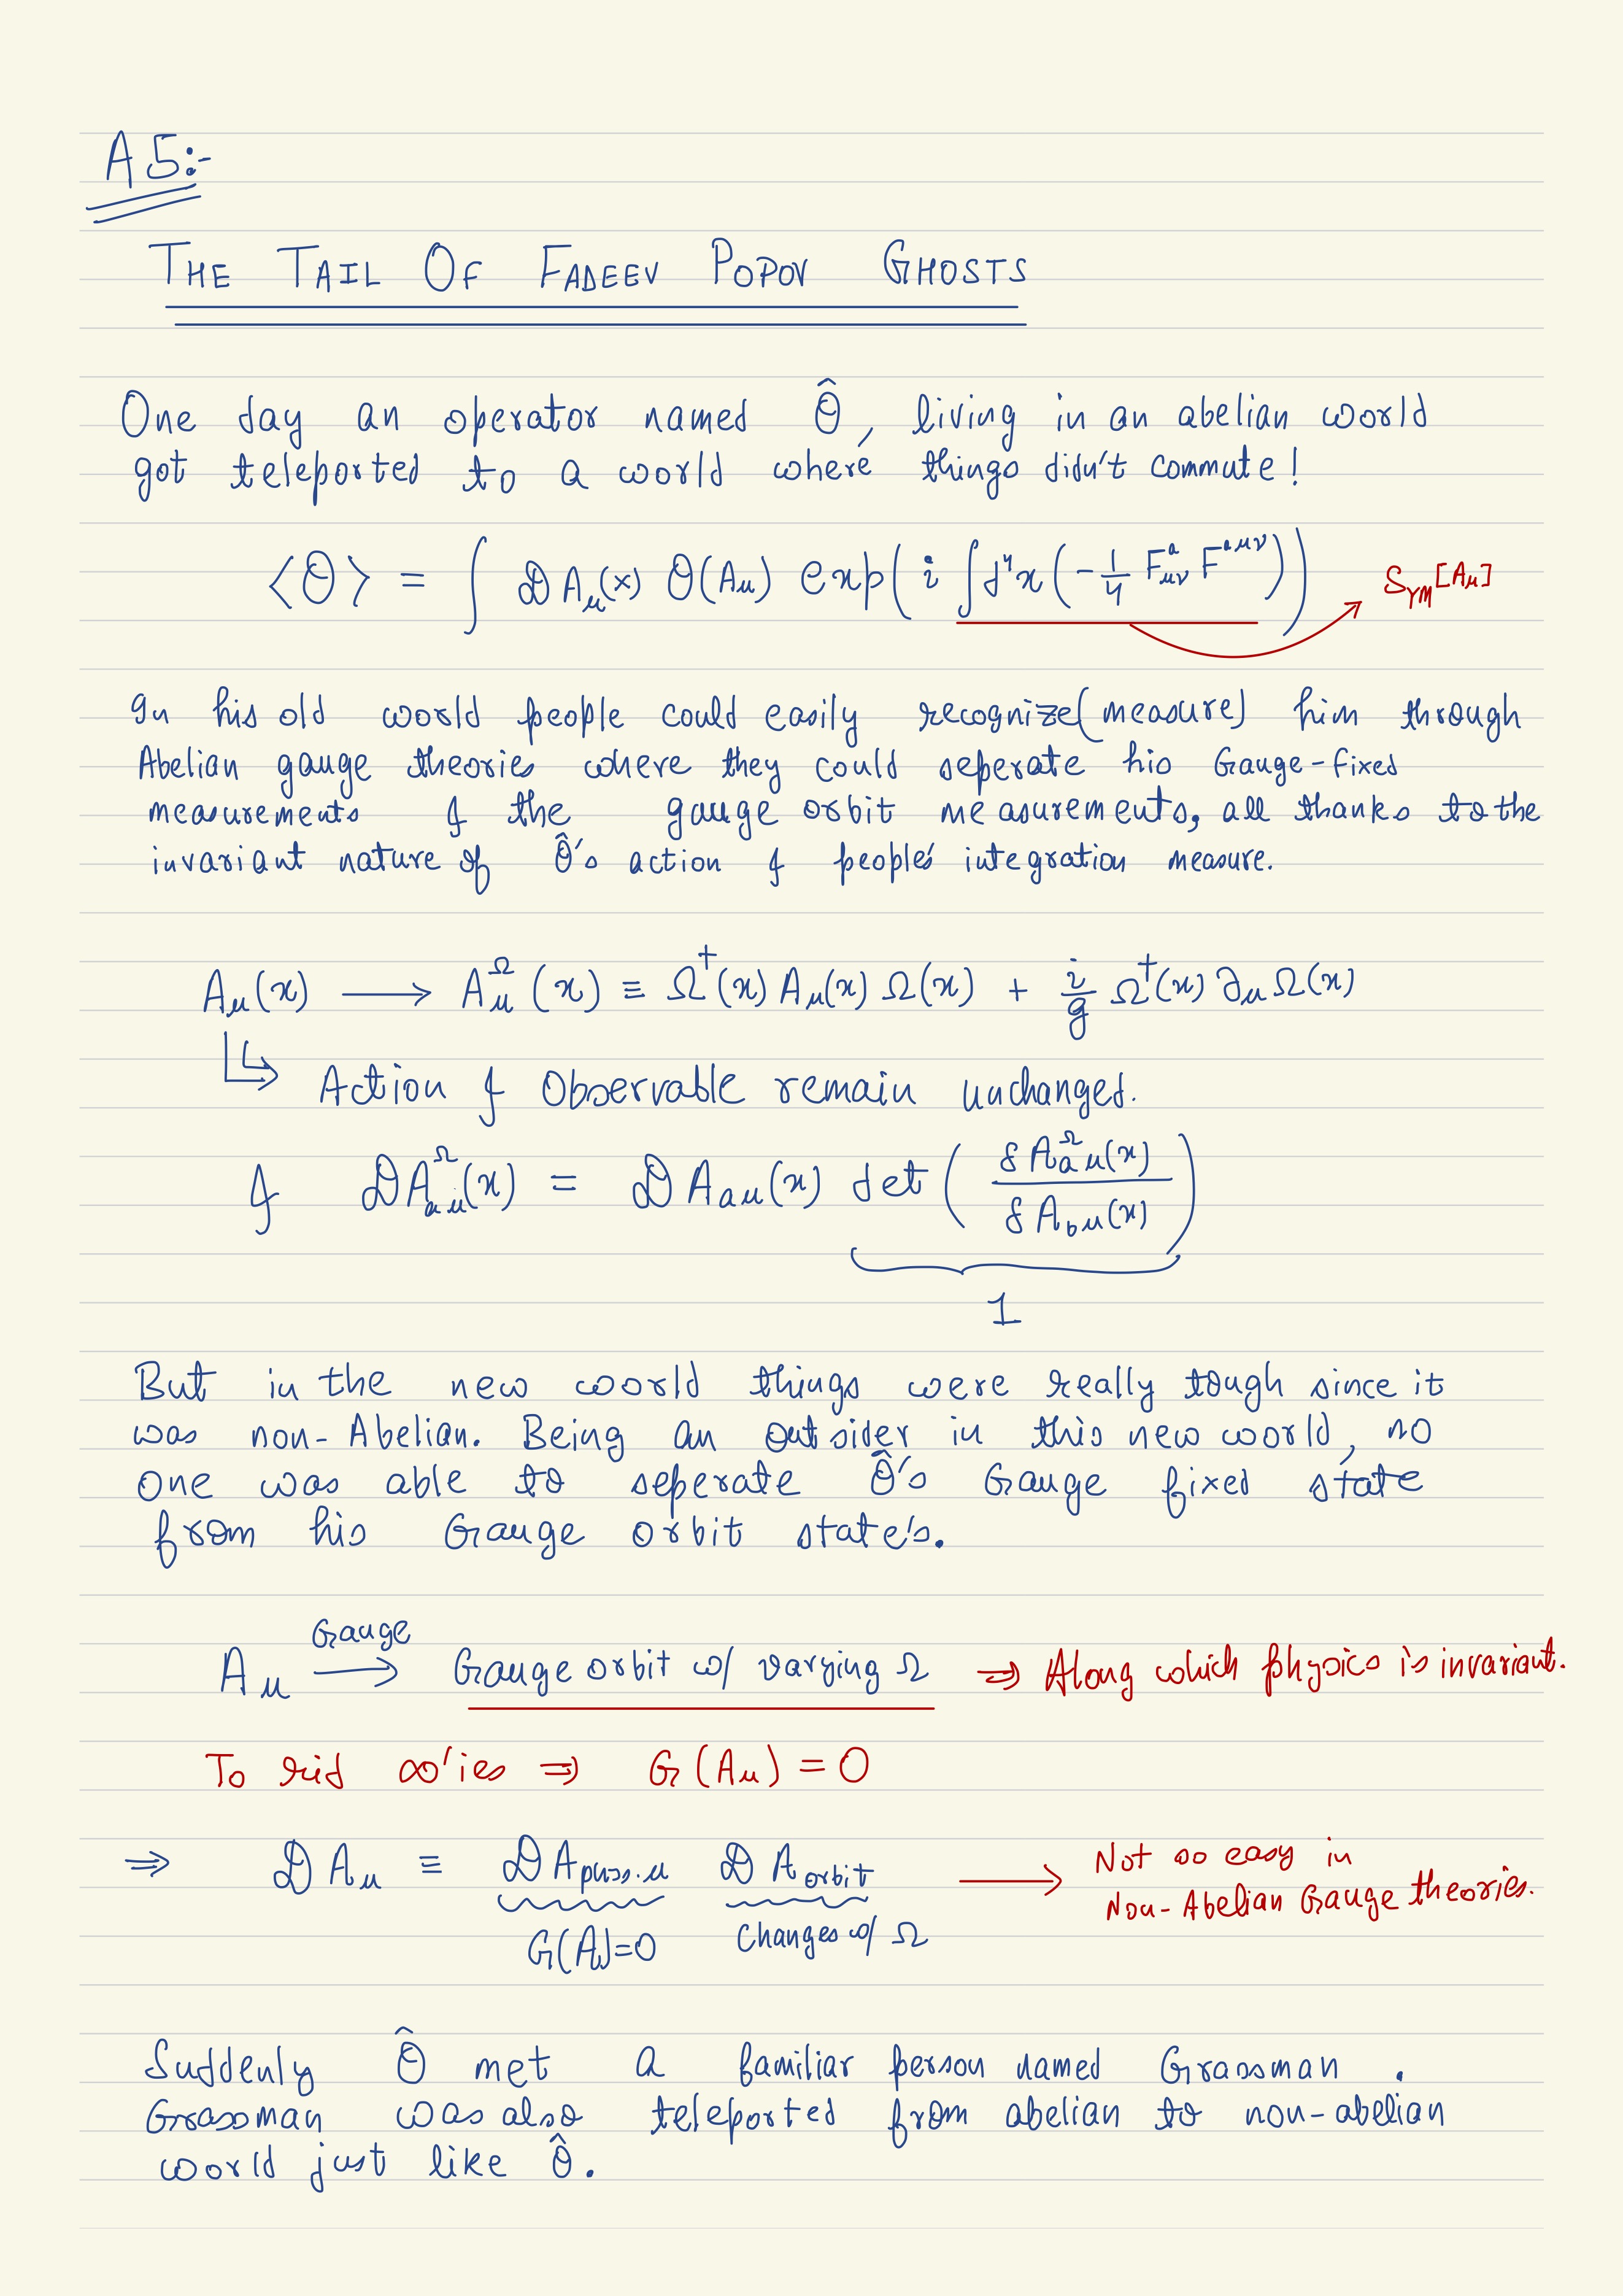 A5:-
THE TAIL OF FADEEV POPOV GHOSTS
One day an operator named Ô, living in an abelian world
got teleported to a world where things didn't commute!
⟨O⟩ = ∫ DA_μ(x) O(A_μ) exp( i ∫d⁴x ( -1/4 F^a_μν F^aμν ) ) S_YM[A_μ]
In his old world people could easily recognize(measure) him through
Abelian gauge theories where they could seperate his Gauge-fixed
measurements & the gauge orbit measurements, all thanks to the
invariant nature of Ô's action & people's integration measure.
A_μ(x) ⟶ A^Ω_μ(x) ≡ Ω†(x) A_μ(x) Ω(x) + i/g Ω†(x) ∂_μ Ω(x)
↳ Action & Observable remain unchanged.
& DA^Ω_aμ(x) = DA_aμ(x) det( δA^Ω_aμ(x) / δA_bμ(x) )
1
But in the new world things were really tough since it
was non-Abelian. Being an outsider in this new world, no
one was able to seperate Ô's Gauge fixed state
from his Gauge orbit state's.
A_μ ⟶ Gauge Gauge orbit w/ varying Ω ⇒ Along which physics is invariant.
To rid ∞'ies ⇒ G(A_μ) = 0
⇒ DA_μ ≡ DA_phys.μ DA_orbit ⟶ Not so easy in
Non-Abelian Gauge theories.
G(A)=0 Changes w/ Ω
Suddenly Ô met a familiar person named Grassman.
Grassman was also teleported from abelian to non-abelian
world just like Ô.